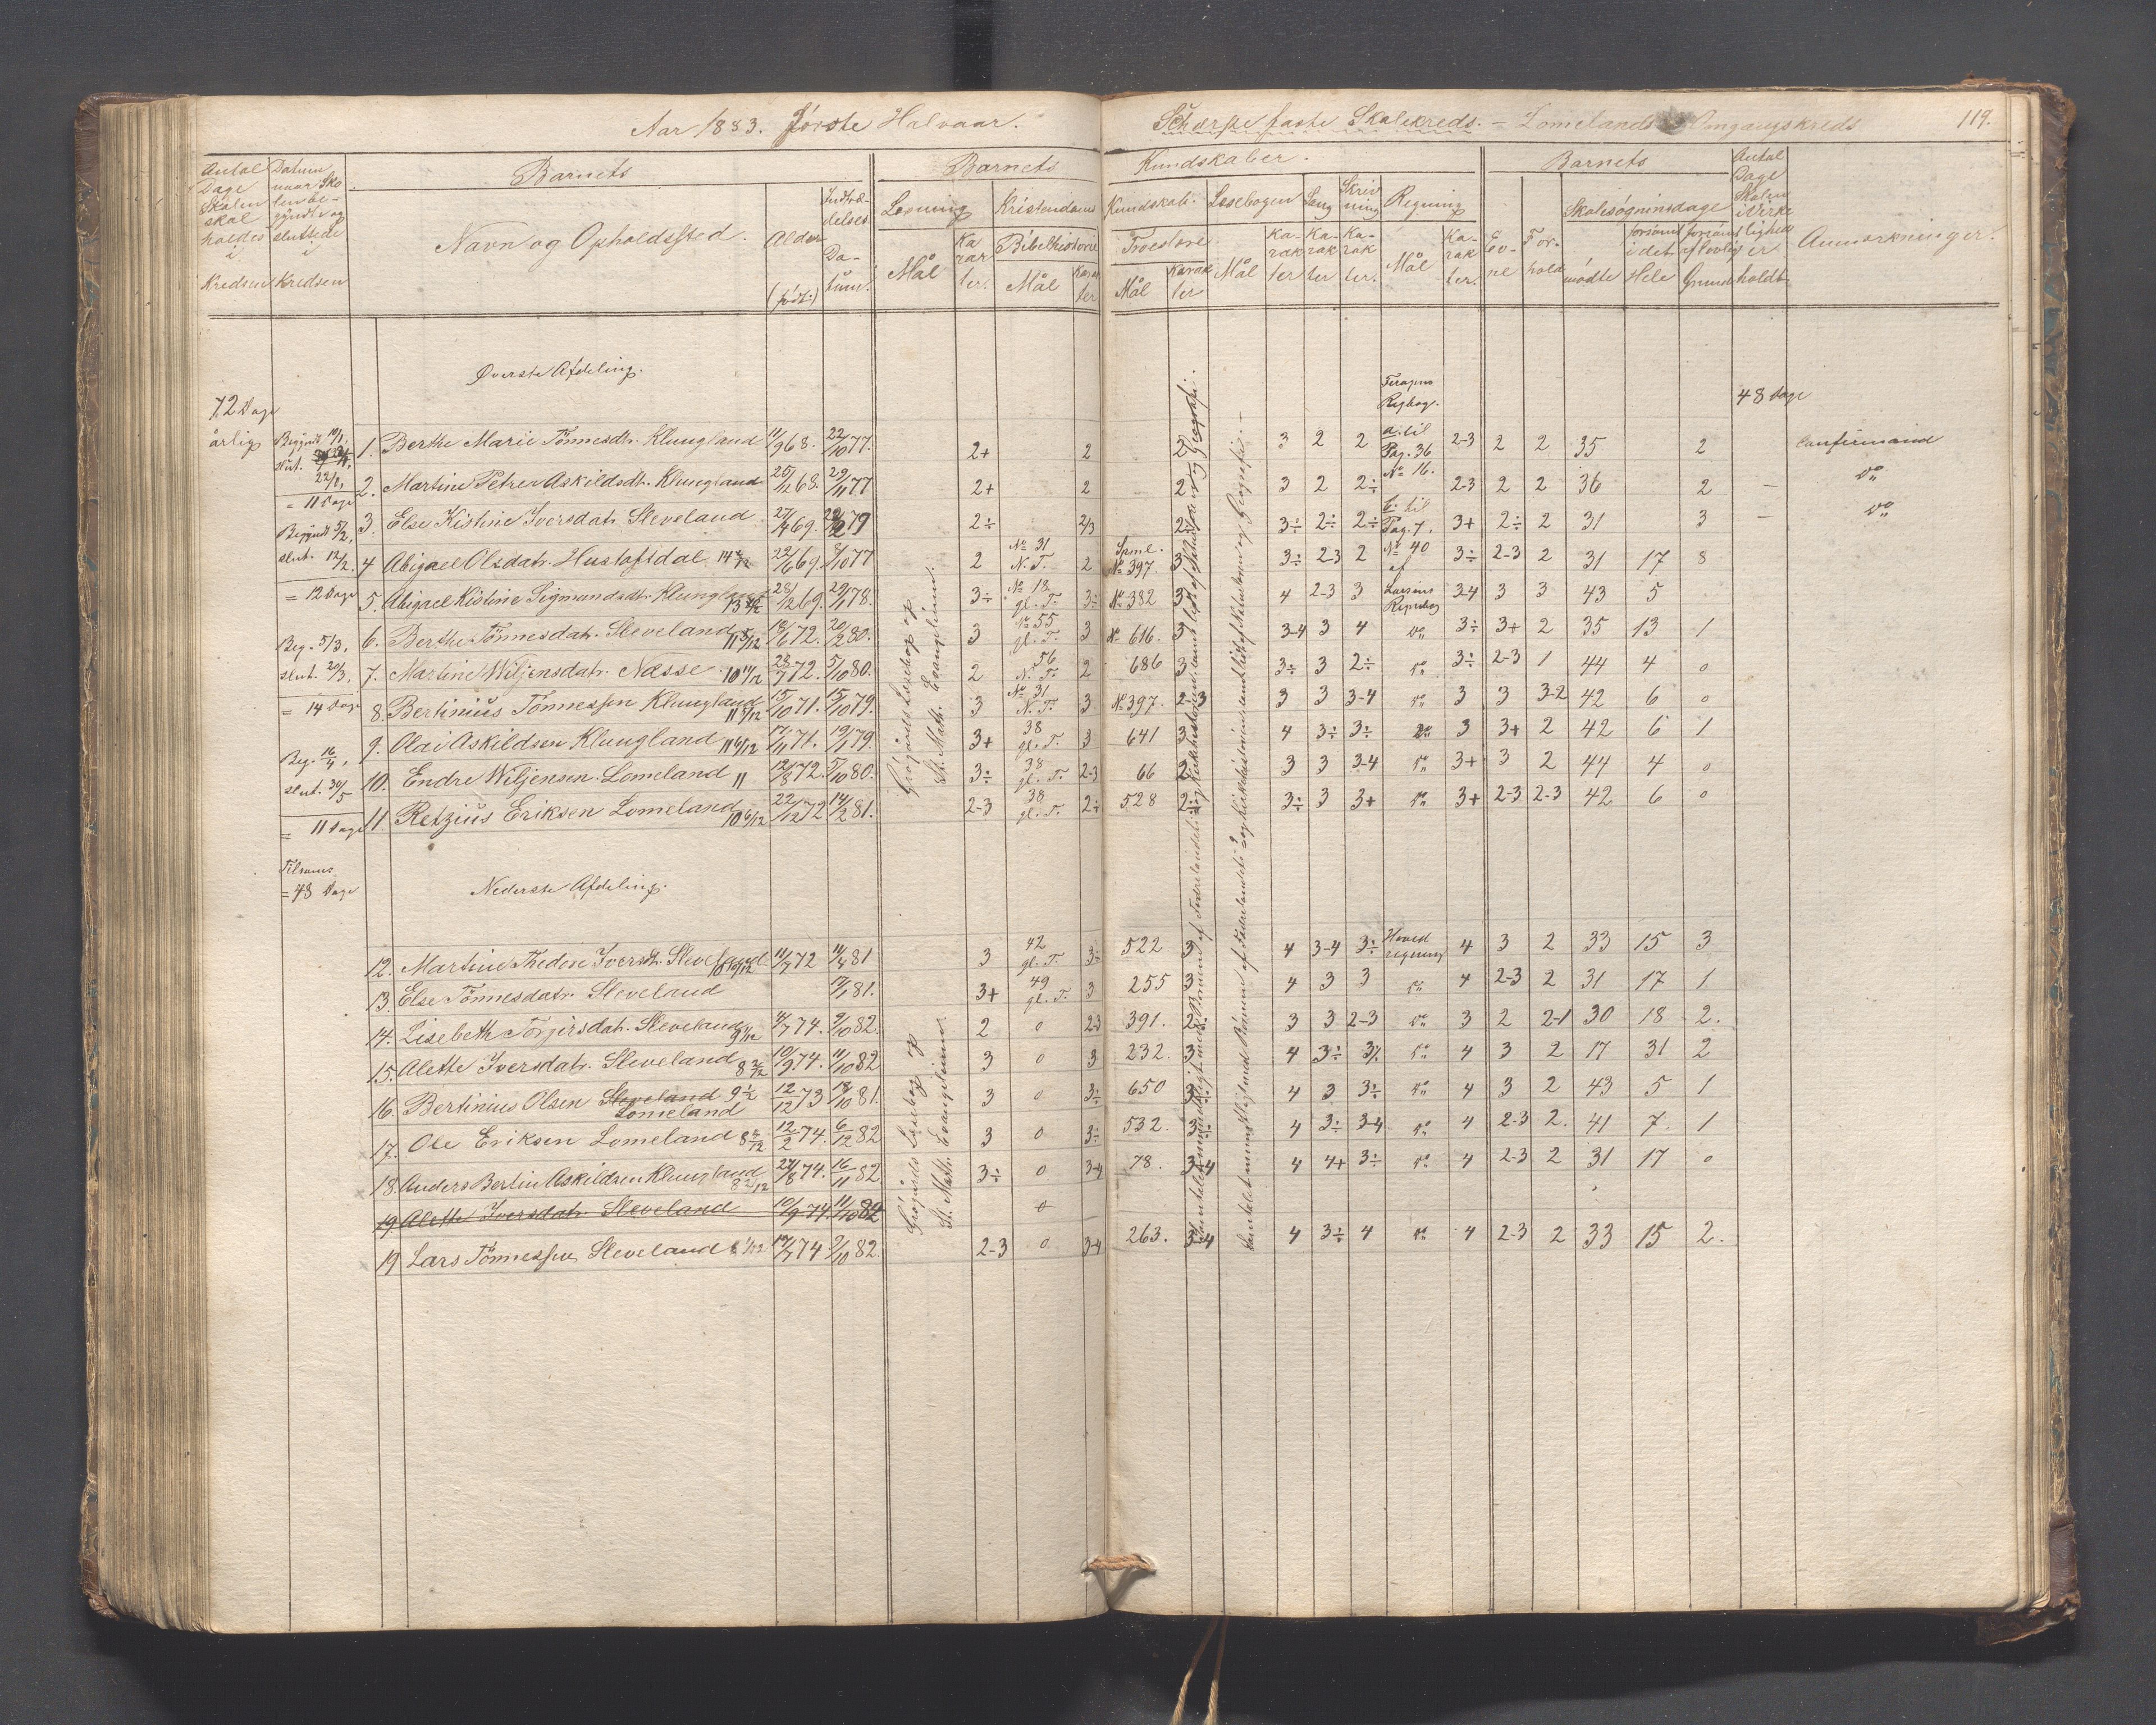 Aar 1883. Første Halvaar.
Skarpe faste Skolekreds. – Lomelands Omgangskreds
119.
Antal Dage Skolen skal holdes i Kredsen
Datum naar Skolen begyndte og sluttede i Kredsen
Barnets
Navn og Opholdssted.
Alder (født:)
Indtrædelses Datum.
Barnets Kundskaber.
Læsning
Mål
Karakter.
Kristendoms Kundskab.
Bibelhistorie
Mål
Karakter
Troeslære.
Mål
Karakter
Læsebogen
Mål
Karakter
Sang
Karakter
Skrivning
Karakter.
Regning
Mål
Karakter.
Barnets
Evne
Forhold
Skolesøgningsdage
mødte
forsømt i det Hele
forsømt af lovlig Grund
Antal Dage Skolen i Virkelighed er holdt
Anmærkninger.
Øverste Afdeling.
72 Dage årlig
48 Dage
Begyndt 10/1, slut. 22/1,
= 11 Dage
Begyndt 5/2, slut. 12/2.
= 12 Dage
Beg. 5/3, slut. 20/3,
= 14 Dage
Beg. 16/4, slut. 30/5
= 11 Dage
Tilsams = 48 Dage
Grögårds Læsebog og St. Math. Evangelium.
1. Berthe Marie Tönnesdtr. Klungland 11/9 68. 22/10 77. 2+ 2 2 3 2 2 a. til Pag. 36 2-3 2 2 35 2 Confirmand
2. Martine Petrea Askildsdtr. Klungland 25/12 68. 29/11 77 2+ 2 2 3 2 2÷ No 16. 2-3 2 2 36 2 – do
3. Else Kistine Iversdatr. Sleveland 27/4 69. 79 2÷ 2/3 2÷ 3÷ 2÷ 2÷ b. til Pag. 7. 3+ 2÷ 2 31 3 – do
4 Abigael Olsdatr. Hustoftdal 22/6 69. 8/10 77 2 No 31 N. T. 2 No 397. 3 3÷ 2-3 2 No 40 af 3÷ 2-3 2 31 17 8
5. Abigael Kistine Sigmundsdtr. Klungland 28/12 69. 29/11 78. 3÷ No 18 gl. T. 3÷ No 382 3 4 2-3 3 3-4 3 3 43 5
6. Berthe Tönnesdatr. Sleveland 11 5/12 18/1 72. 20/2 80. 3 No 55 gl. T. 3 No 616. 3 3-4 3 4 do 3÷ 3+ 2 35 13 1
7. Martine Wiljensdatr. Næsse 10 11/12 28/7 72. 5/10 80. 2 56 N. T. 2 686 3 3÷ 3 2÷ do 3÷ 2-3 1 44 4 0
8. Bertinius Tönnessen Klungland 15/10 71. 15/10 79. 3 No 31 N. T. 3 No 397. 2-3 3 3 3-4 do 3 3 3-2 42 6 0
9. Olai Askildsen Klungland 11 6/12 17/11 71. 19/1 79. 3+ 38 gl. T. 3 641 3 4 3÷ 3÷ do 3 3+ 2 42 6 1
10. Endre Wiljensen. Lomeland 11 12/8 72. 5/10 80. 3÷ 38 gl. T. 2-3 66 2 3 3 3-4 do 3+ 3 2 44 4 0
11. Retzius Eriksen Lomeland 10 6/12 22/12 72 14/2 81. 2-3 38 gl. T. 2÷ 528 2÷ 3÷ 3 3+ do 3+ 2-3 2-3 42 6 0
Nederste Afdeling.
Grögårds Læsebog og St. Math. Evangelium.
12. Martine Thedore Iversdtr. Sleveland 10 10/12 11/7 72 11/4 81 3 42 gl. T. 3÷ 522 3 4 3-4 3÷ Hoved regning 4 3 2 33 15 3
13. Else Tönnesdatr. Sleveland 81. 3+ 49 gl. T. 3 255 3 4 3 3 do 4 2-3 2 31 17 1
14. Lisebeth Torjersdatr. Sleveland 9 1/12 4/7 74. 9/10 82. 2 0 2-3 391. 2÷ 3 3 2-3 do 3 2 2-1 30 18 2.
15. Alette Iversdatr. Sleveland 8 10/9 74. 11/10 82 3 0 3 232. 3 4 3÷ 3÷ do 4 3 2 17 31 2
16. Bertinius Olsen Sleveland Lomeland 9 12/12 73 18/10 81. 3 0 3÷ 650 3 4 3 3÷ do 4 3 2 43 5 1
17. Ole Eriksen Lomeland 8 12/2 74. 6/12 82 3 0 3÷ 532. 3÷ 4 3÷ 3-4 do 4 2-3 2. 41 7. 1
18. Anders Bertin Askildsen Klungland 27/8 74. 16/11 82 3÷ 0 3-4 78. 3-4 4 4+ 3÷ do 4 2-3 2 31 17 0
19 Alette Iversdatr. Sleveland 10/9 74. 11/10 82 0
19 Lars Tönnessen Sleveland 74 9/10 82. 2-3 0 3-4 263. 3-4 4 3÷ 4 do 4 2-3 2 33 15 2.